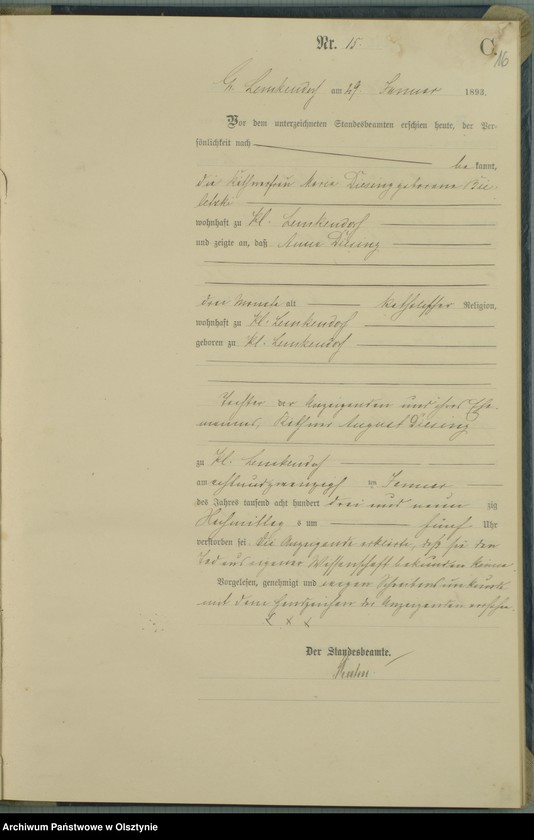 Nr. 15.
C.
16
Gr. Lemkendorf am 29. Januar 1893.
Vor dem unterzeichneten Standesbeamten erschien heute, der Per-
sönlichkeit nach
be kannt,
die Käthnerfrau Maria Diesing geborene Bie-
letzki
wohnhaft zu Kl. Lemkendorf
und zeigte an, daß Anna Diesing
drei Monate alt katholischer Religion,
wohnhaft zu Kl. Lemkendorf
geboren zu Kl. Lemkendorf
Tochter der Anzeigenden und ihres Ehe-
mannes, Käthner August Diesing
zu Kl. Lemkendorf
am achtundzwanzigsten Januar
des Jahres tausend acht hundert drei und neun zig
Nachmittags um fünf Uhr
verstorben sei. Die Anzeigende erklärte, daß sie den
Tod aus eigener Wissenschaft bekunden könne.
Vorgelesen, genehmigt und wegen Schreibensunkunde
mit dem Handzeichen der Anzeigenden versehen.
x x x
Der Standesbeamte.